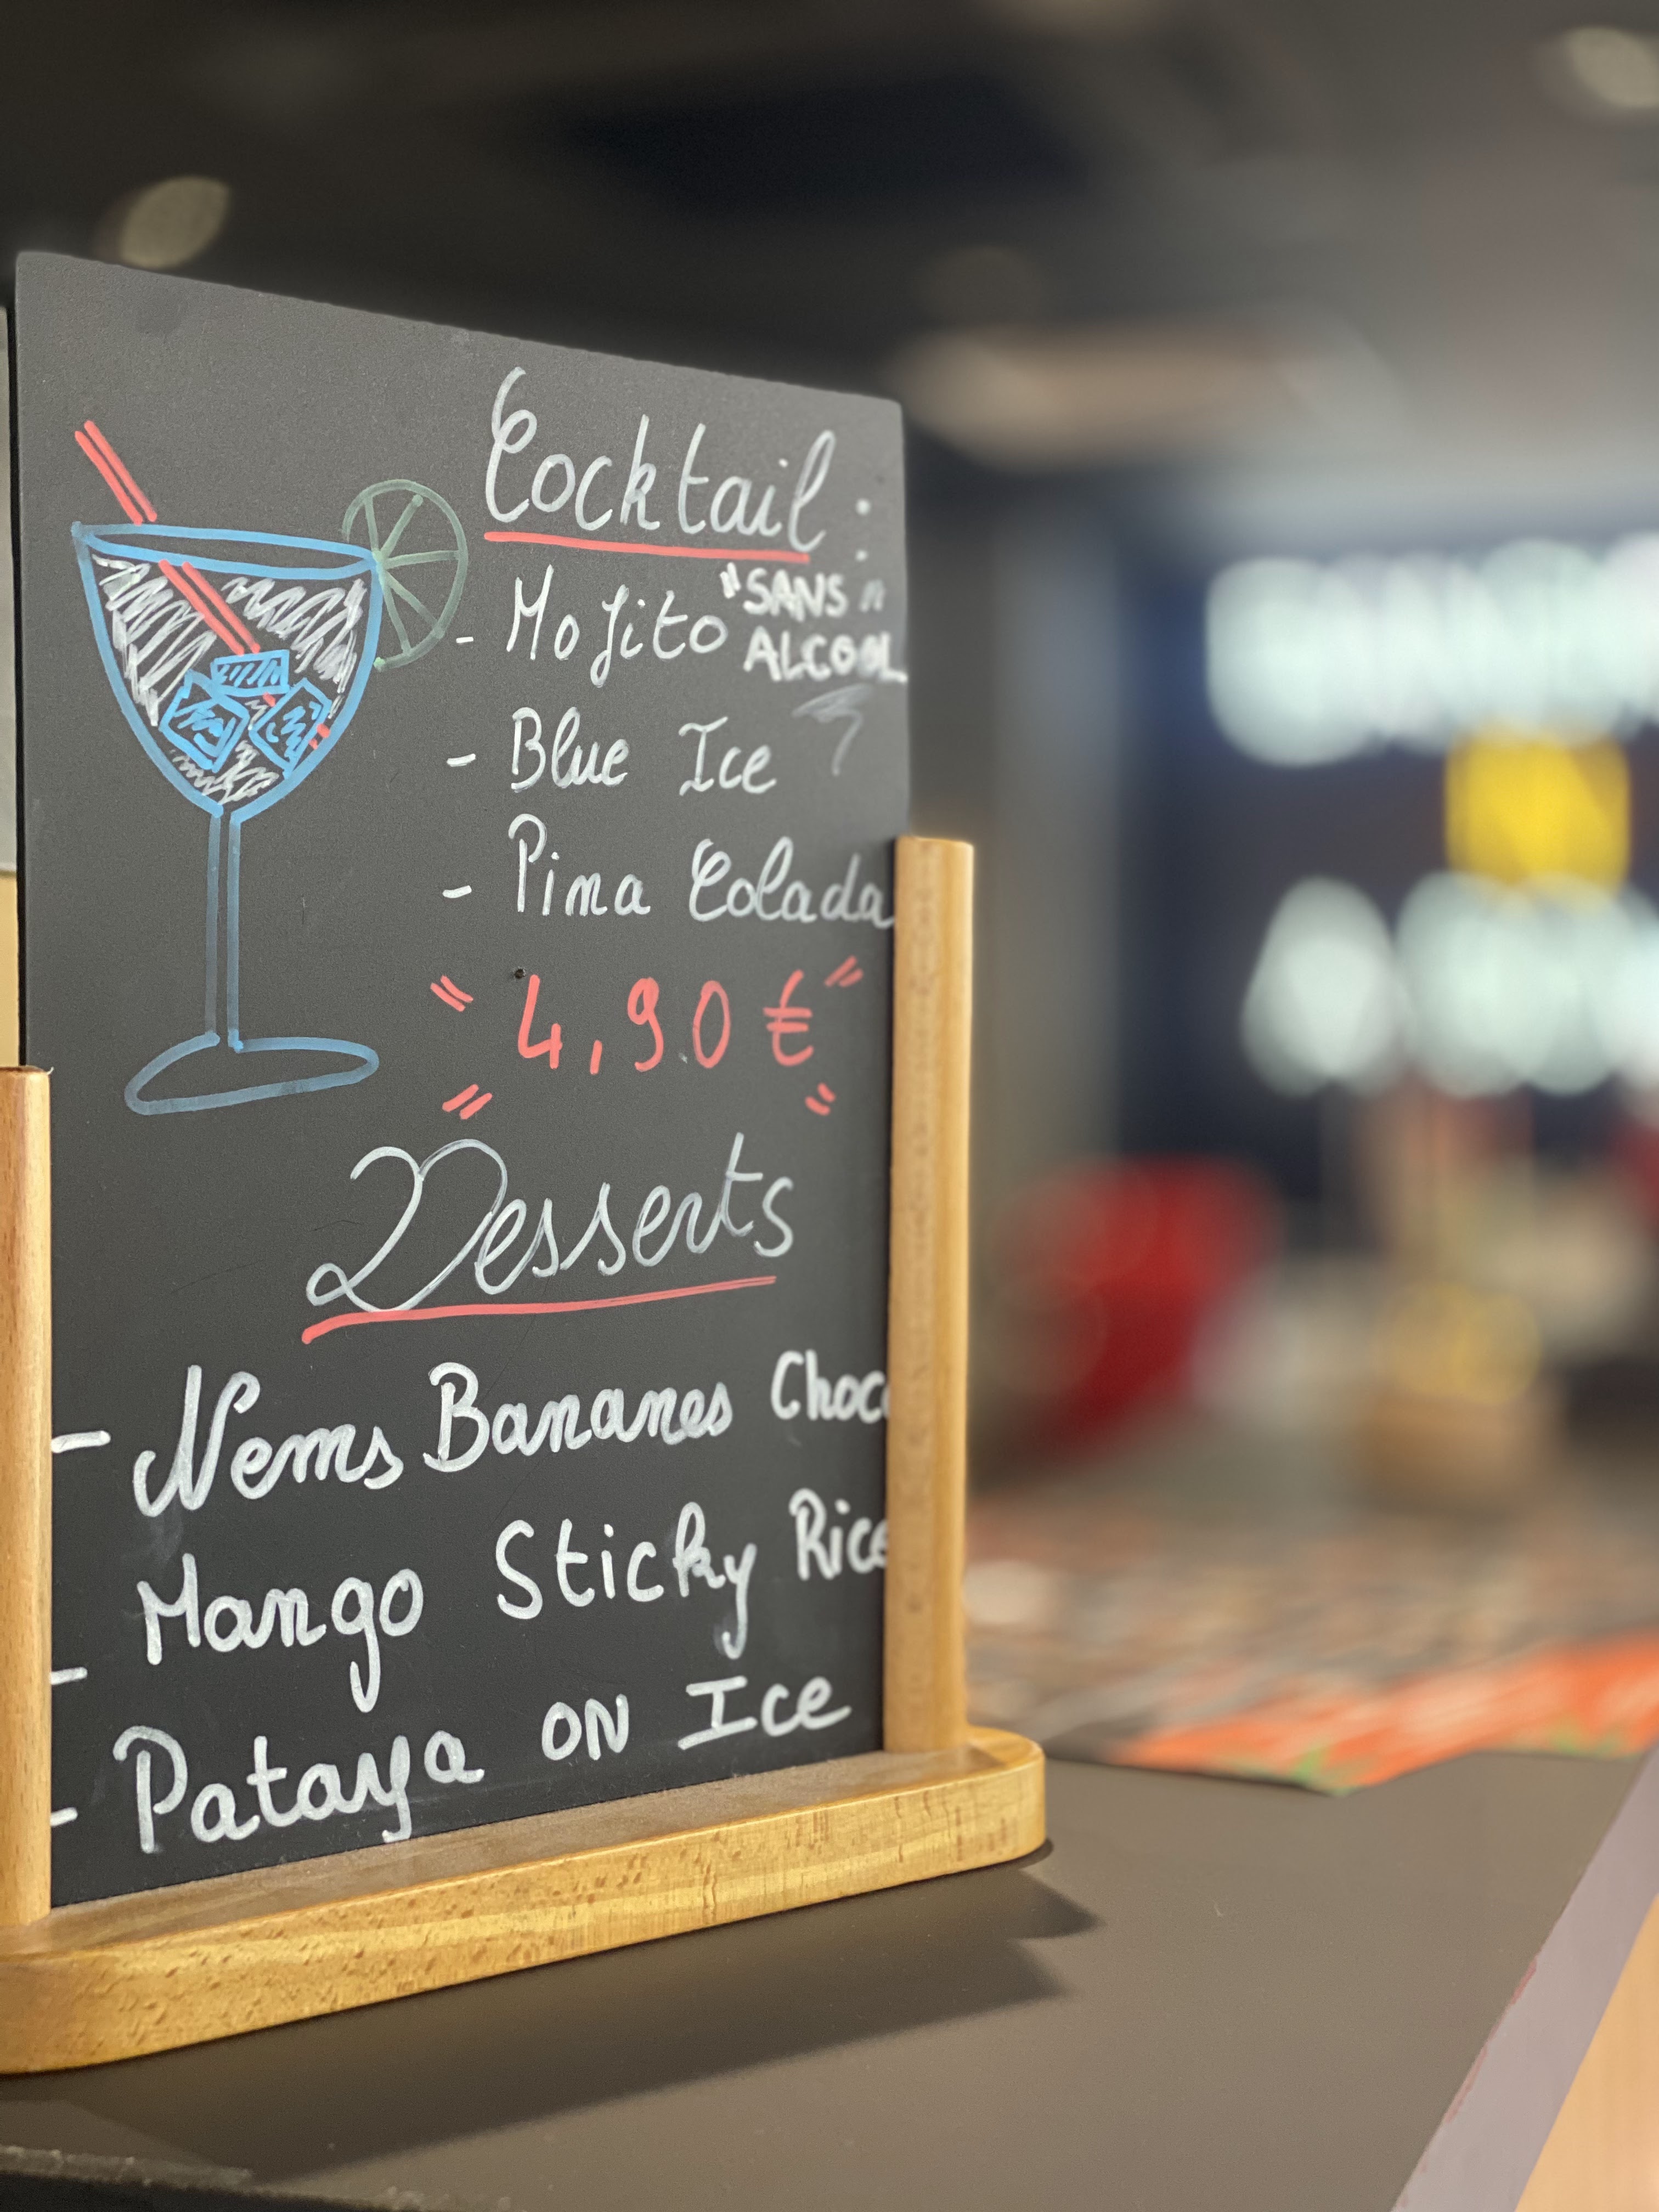 Cocktail :
- Mojito "SANS "
ALCOOL
- Blue Ice
- Pina Colada
" 4,90 € "
Desserts
- Nems Bananes Choc
- Mango Sticky Rice
- Pataya ON Ice